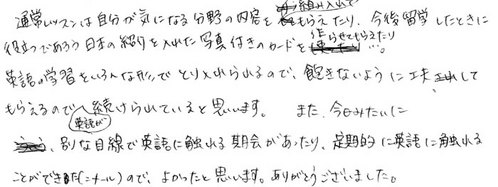 通常レッスンは自分が気になる分野の内容を組み入れてもらえたり、今後留学したときに
役立つであろう日本の紹介を入れた写真付きのカードを作らせてもらえたり…。
英語の学習をいろんな形でとり入れられるので、飽きないように工夫して
もらえるので英語が続けられていると思います。 また、今日みたいに
別な目線で英語に触れる機会があったり、定期的に英語に触れる
ことができた(ニナール)ので、よかったと思います。ありがとうございました。